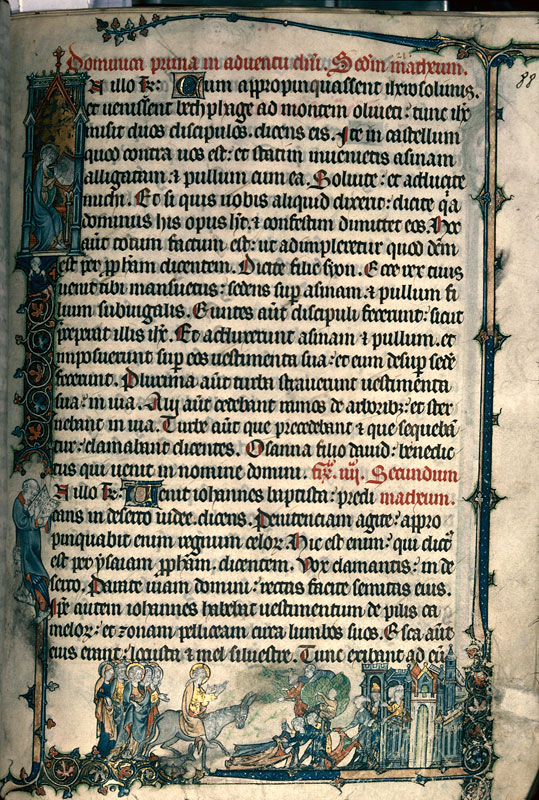 Dominica prima in adventu dni. Scdm matheum.
88
In illo tr: Cum appropinquassent iherosolimis.
et venissent bethphage ad montem oliveti: tunc ihc
misit duos discipulos. dicens eis. Ite in castellum
quod contra uos est: et statim invenietis asinam
alligatam: & pullum cum ea. Solvite: et adducite
michi. Et si quis uobis aliquid dixerit: dicite qa
dominus his opus ht. & confestim dimittet eos. Hoc
aut totum factum est: ut adimpleretur quod dcm
est per ppham dicentem. Dicite filie syon. Ecce rex tuus
uenit tibi mansuetus: sedens sup asinam. & pullum fi
lium subiugalis. Euntes aut discipuli fecerunt: sicut
preceperat illis ihc. Et adduxerunt asinam & pullum. et
imposuerunt sup eos uestimenta sua: et eum desup sede
fecerunt. Plurima aut turba straverunt uestimenta
sua: in uia. Alij aut cedebant ramos de arboribz: et ster
nebant in uia. Turbe aut que precedebant & que sequeba
tur: clamabant dicentes. Osanna filio david: benedic
tus qui uenit in nomine domini. fia. iiii. Secundum
In illo tr: Uenit iohannes baptista: predi matheum.
cans in deserto iudee. dicens. Penitentiam agite: appro
pinquabit enim regnum celor. Hic est enim: qui dict
est per ysaiam ppham. dicentem. Vox clamantis: in de
serto. Parate uiam domini: rectas facite semitas eius.
Ipe autem iohannes habebat uestimentum de pilis ca
melor: et zonam pelliceam circa lumbos suos. Esca aut
eius erant: locusta & mel silvestre. Tunc exibant ad eu